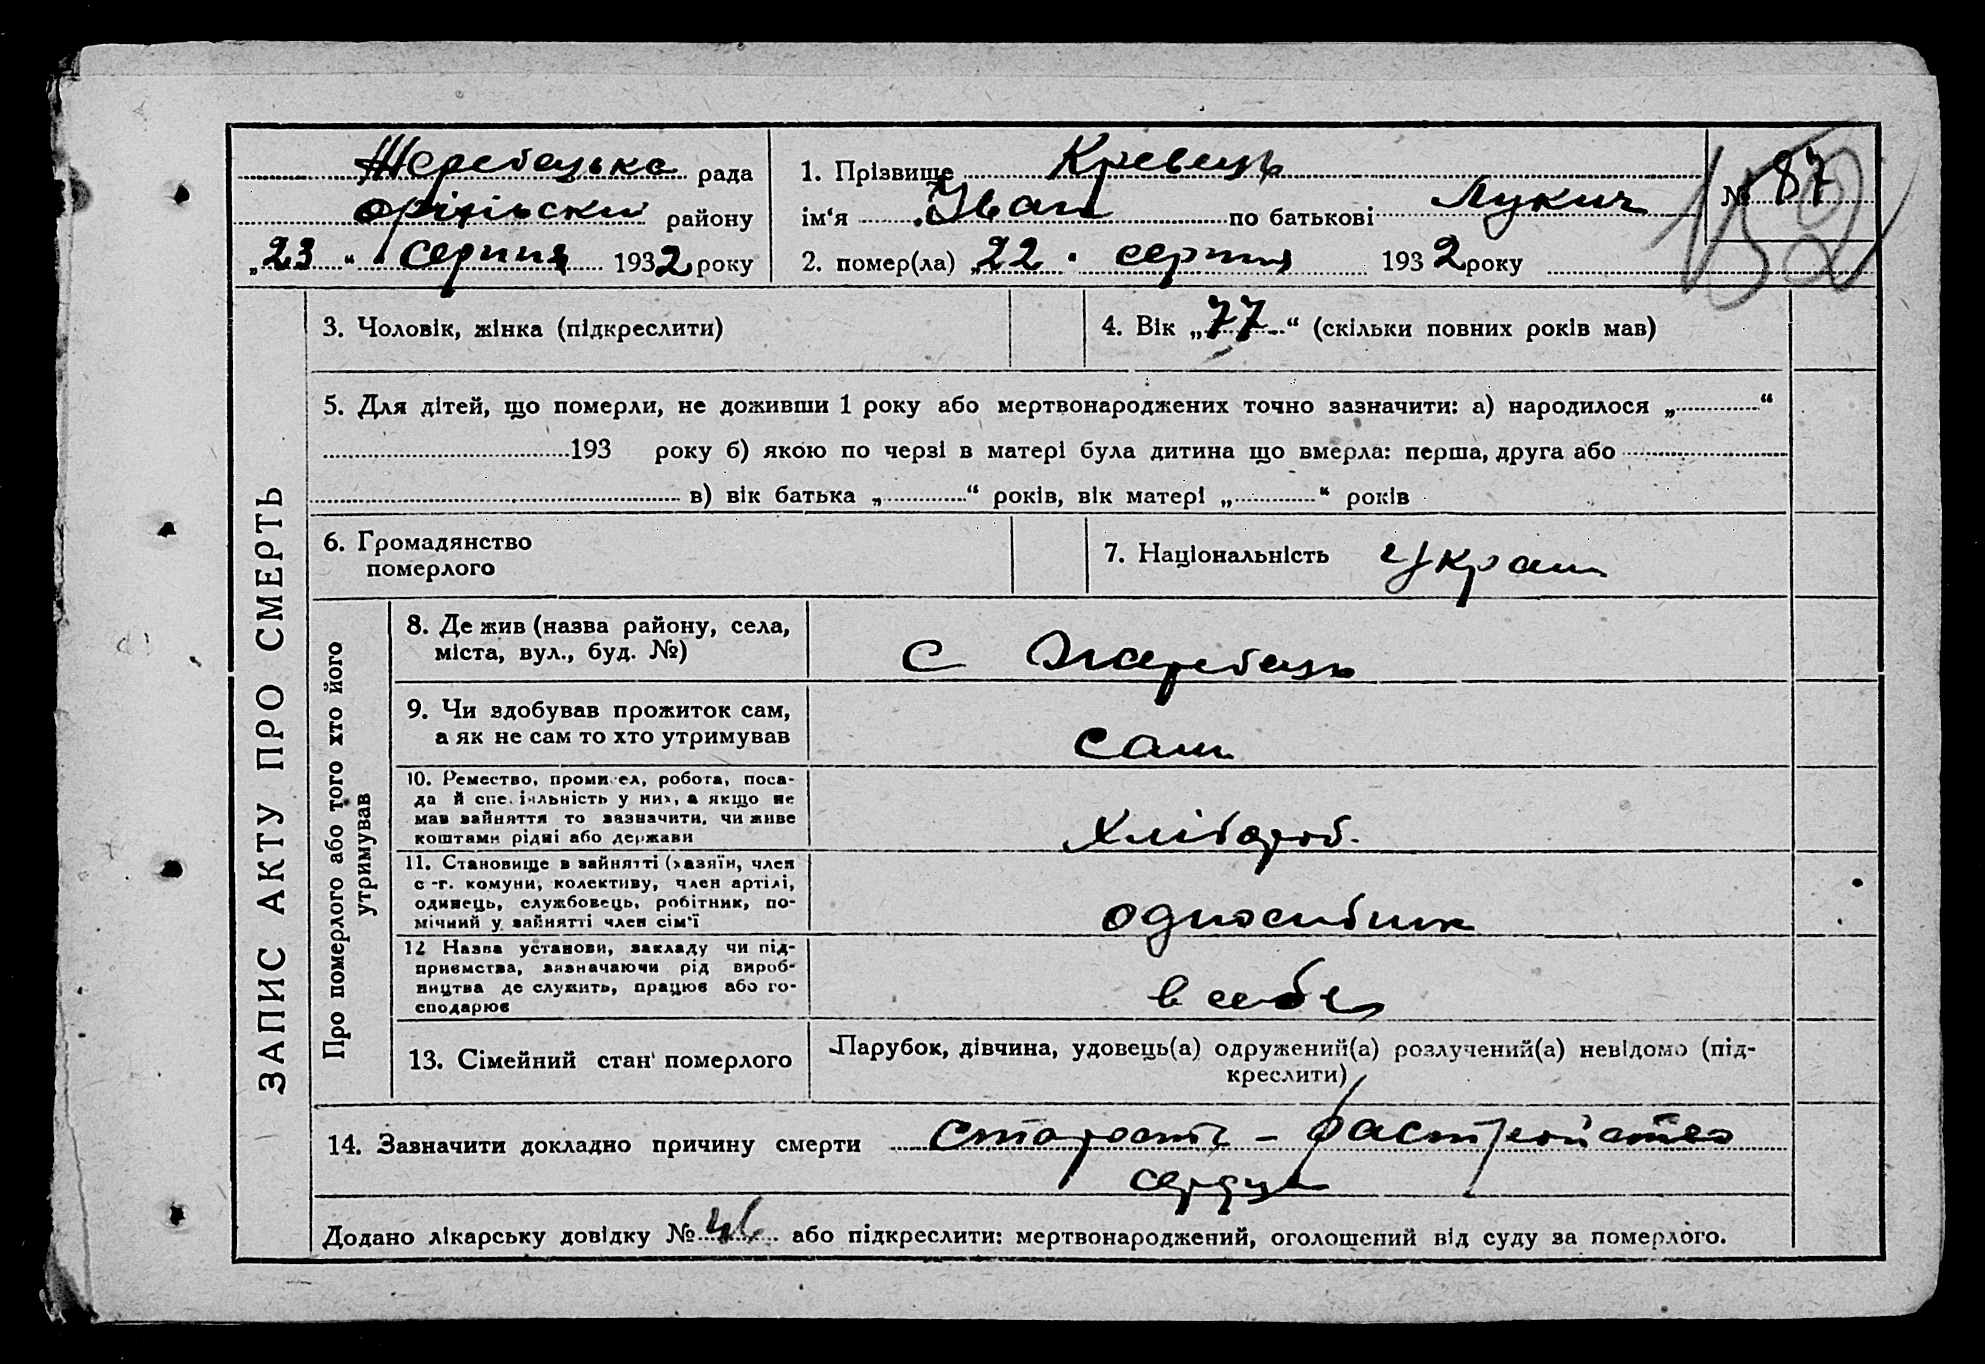 Жеребецька рада
Оріхівський району
„23“ серпня 1932 року
1. Прізвище Кревець
ім‘я Іван по батькові Лукич
2. помер(ла) „22 серпня 1932 року
№ 87
152
ЗАПИС АКТУ ПРО СМЕРТЬ
3. Чоловік, жінка (підкреслити)
4. Вік „77“ (скільки повних років мав)
5. Для дітей, що померли, не доживши 1 року або мертвонароджених точно зазначити: а) народилося „ “
193 року б) якою по черзі в матері була дитина що вмерла: перша, друга або
в) вік батька „ “ років, вік матері „ “ років
6. Громадянство
померлого
7. Національність украин
Про померлого або того хто його
утримував
8. Де жив (назва району, села,
міста, вул., буд. №)
с Жеребець
9. Чи здобував прожиток сам,
а як не сам то хто утримував
сам
10. Ремество, промисел, робота, поса-
да й спеціяльність у них, а якщо не
мав зайняття то зазначити, чи живе
коштами рідні або держави
Хлібороб.
11. Становище в зайнятті (хазяїн, член
с-г. комуни, колективу, член артілі,
одинець, службовець, робітник, по-
мічний у зайнятті член сім‘ї
односибник
12 Назва установи, закладу чи під-
приємства, зазначаючи рід вироб-
ництва де служить, працює або го-
сподарює
в себе
13. Сімейний стан померлого
Парубок, дівчина, удовець(а) одружений(а) розлучений(а) невідомо (під-
креслити)
14. Зазначити докладно причину смерти старость – расстройство
сердца
Додано лікарську довідку № 46 або підкреслити: мертвонароджений, оголошений від суду за померлого.